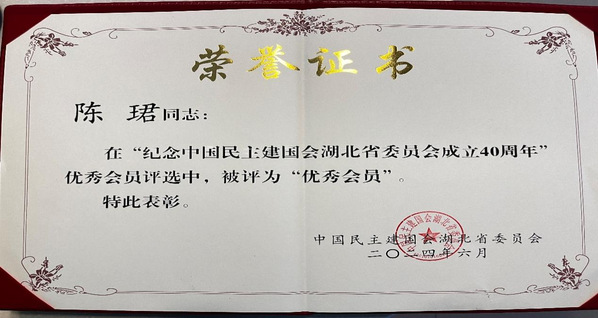 荣誉证书
陈珺同志：
在“纪念中国民主建国会湖北省委员会成立40周年”
优秀会员评选中，被评为“优秀会员”。
特此表彰。
中国民主建国会湖北省委员会
二〇二四年六月